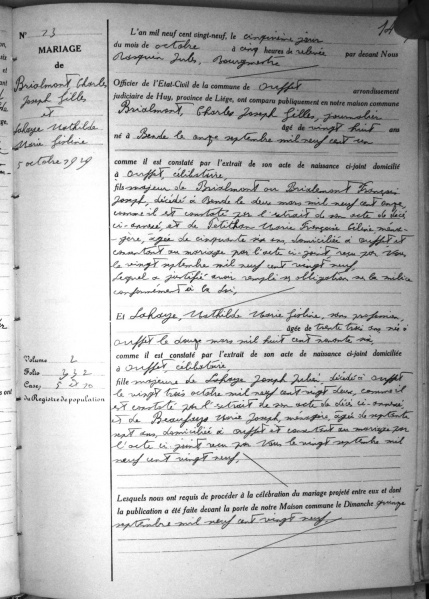 N° 23
MARIAGE
de
Brialmont Charles
Joseph Gilles
et
Lahaye Mathilde
Marie Gisline
5 octobre 1929
Volume 2
Folio
Case, 5 et 10
du Registre de population
L'an mil neuf cent vingt-neuf, le cinquième jour
du mois de octobre à cinq heures de relevée par devant Nous
Rasquin Jules, Bourgmestre
Officier de l'Etat-Civil de la commune de Ouffet arrondissement
judiciaire de Huy, province de Liége, ont comparu publiquement en notre maison commune
Brialmont, Charles Joseph Gilles, journalier
âgé de vingt huit ans
né à Bende le onze septembre mil neuf cent un
comme il est constaté par l'extrait de son acte de naissance ci-joint domicilié
à Ouffet, célibataire,
fils majeur de Brialmont ou Brialemont François
Joseph, décédé à Bende le deux mars mil neuf cent onze,
comme il est constaté par l'extrait de son acte de décès
ci-annexé, et de Petithan Marie Françoise Céline ména-
gère, âgée de cinquante ans, domiciliée à Ouffet et
consentant au mariage par l'acte ci-joint reçu par Nous
le vingt septembre mil neuf cent vingt neuf.
Lequel a justifié avoir rempli ses obligations de la milice
conformément à la loi,
Et Lahaye, Mathilde Marie Gisline, sans profession,
âgée de trente trois ans née à
Ouffet le douze mars mil huit cent nonante six,
comme il est constaté par l'extrait de son acte de naissance ci-joint domiciliée
à Ouffet célibataire
fille majeure de Lahaye Joseph Julien, décédé à Ouffet
le vingt trois octobre mil neuf cent vingt deux, comme il
est constaté par l'extrait de son acte de décès ci-annexé
et de Marie Joseph, ménagère, âgée de septante
sept ans, domiciliée à Ouffet et consentant au mariage par
l'acte ci joint reçu par Nous le vingt septembre mil
neuf cent vingt neuf,
Lesquels nous ont requis de procéder à la célébration du mariage projeté entre eux et dont
la publication a été faite devant la porte de notre Maison commune le Dimanche quinze
septembre mil neuf cent vingt neuf